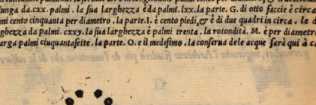 lunga da.cxx. palmi. la sua larghezza è da palmi. lxx. la parte. G. di otto faccie è circa
mi cento cinquanta per diametro. la parte. I. è cento piedi, & è di due quadri in circa. le d
ghezza da palmi. cxxy. la sua larghezza è palmi trenta. la rotondità. M. è per diametro
arga palmi cinquantasette. la parte. O. è il medesimo. la conserua delle acque sarà quì a ca